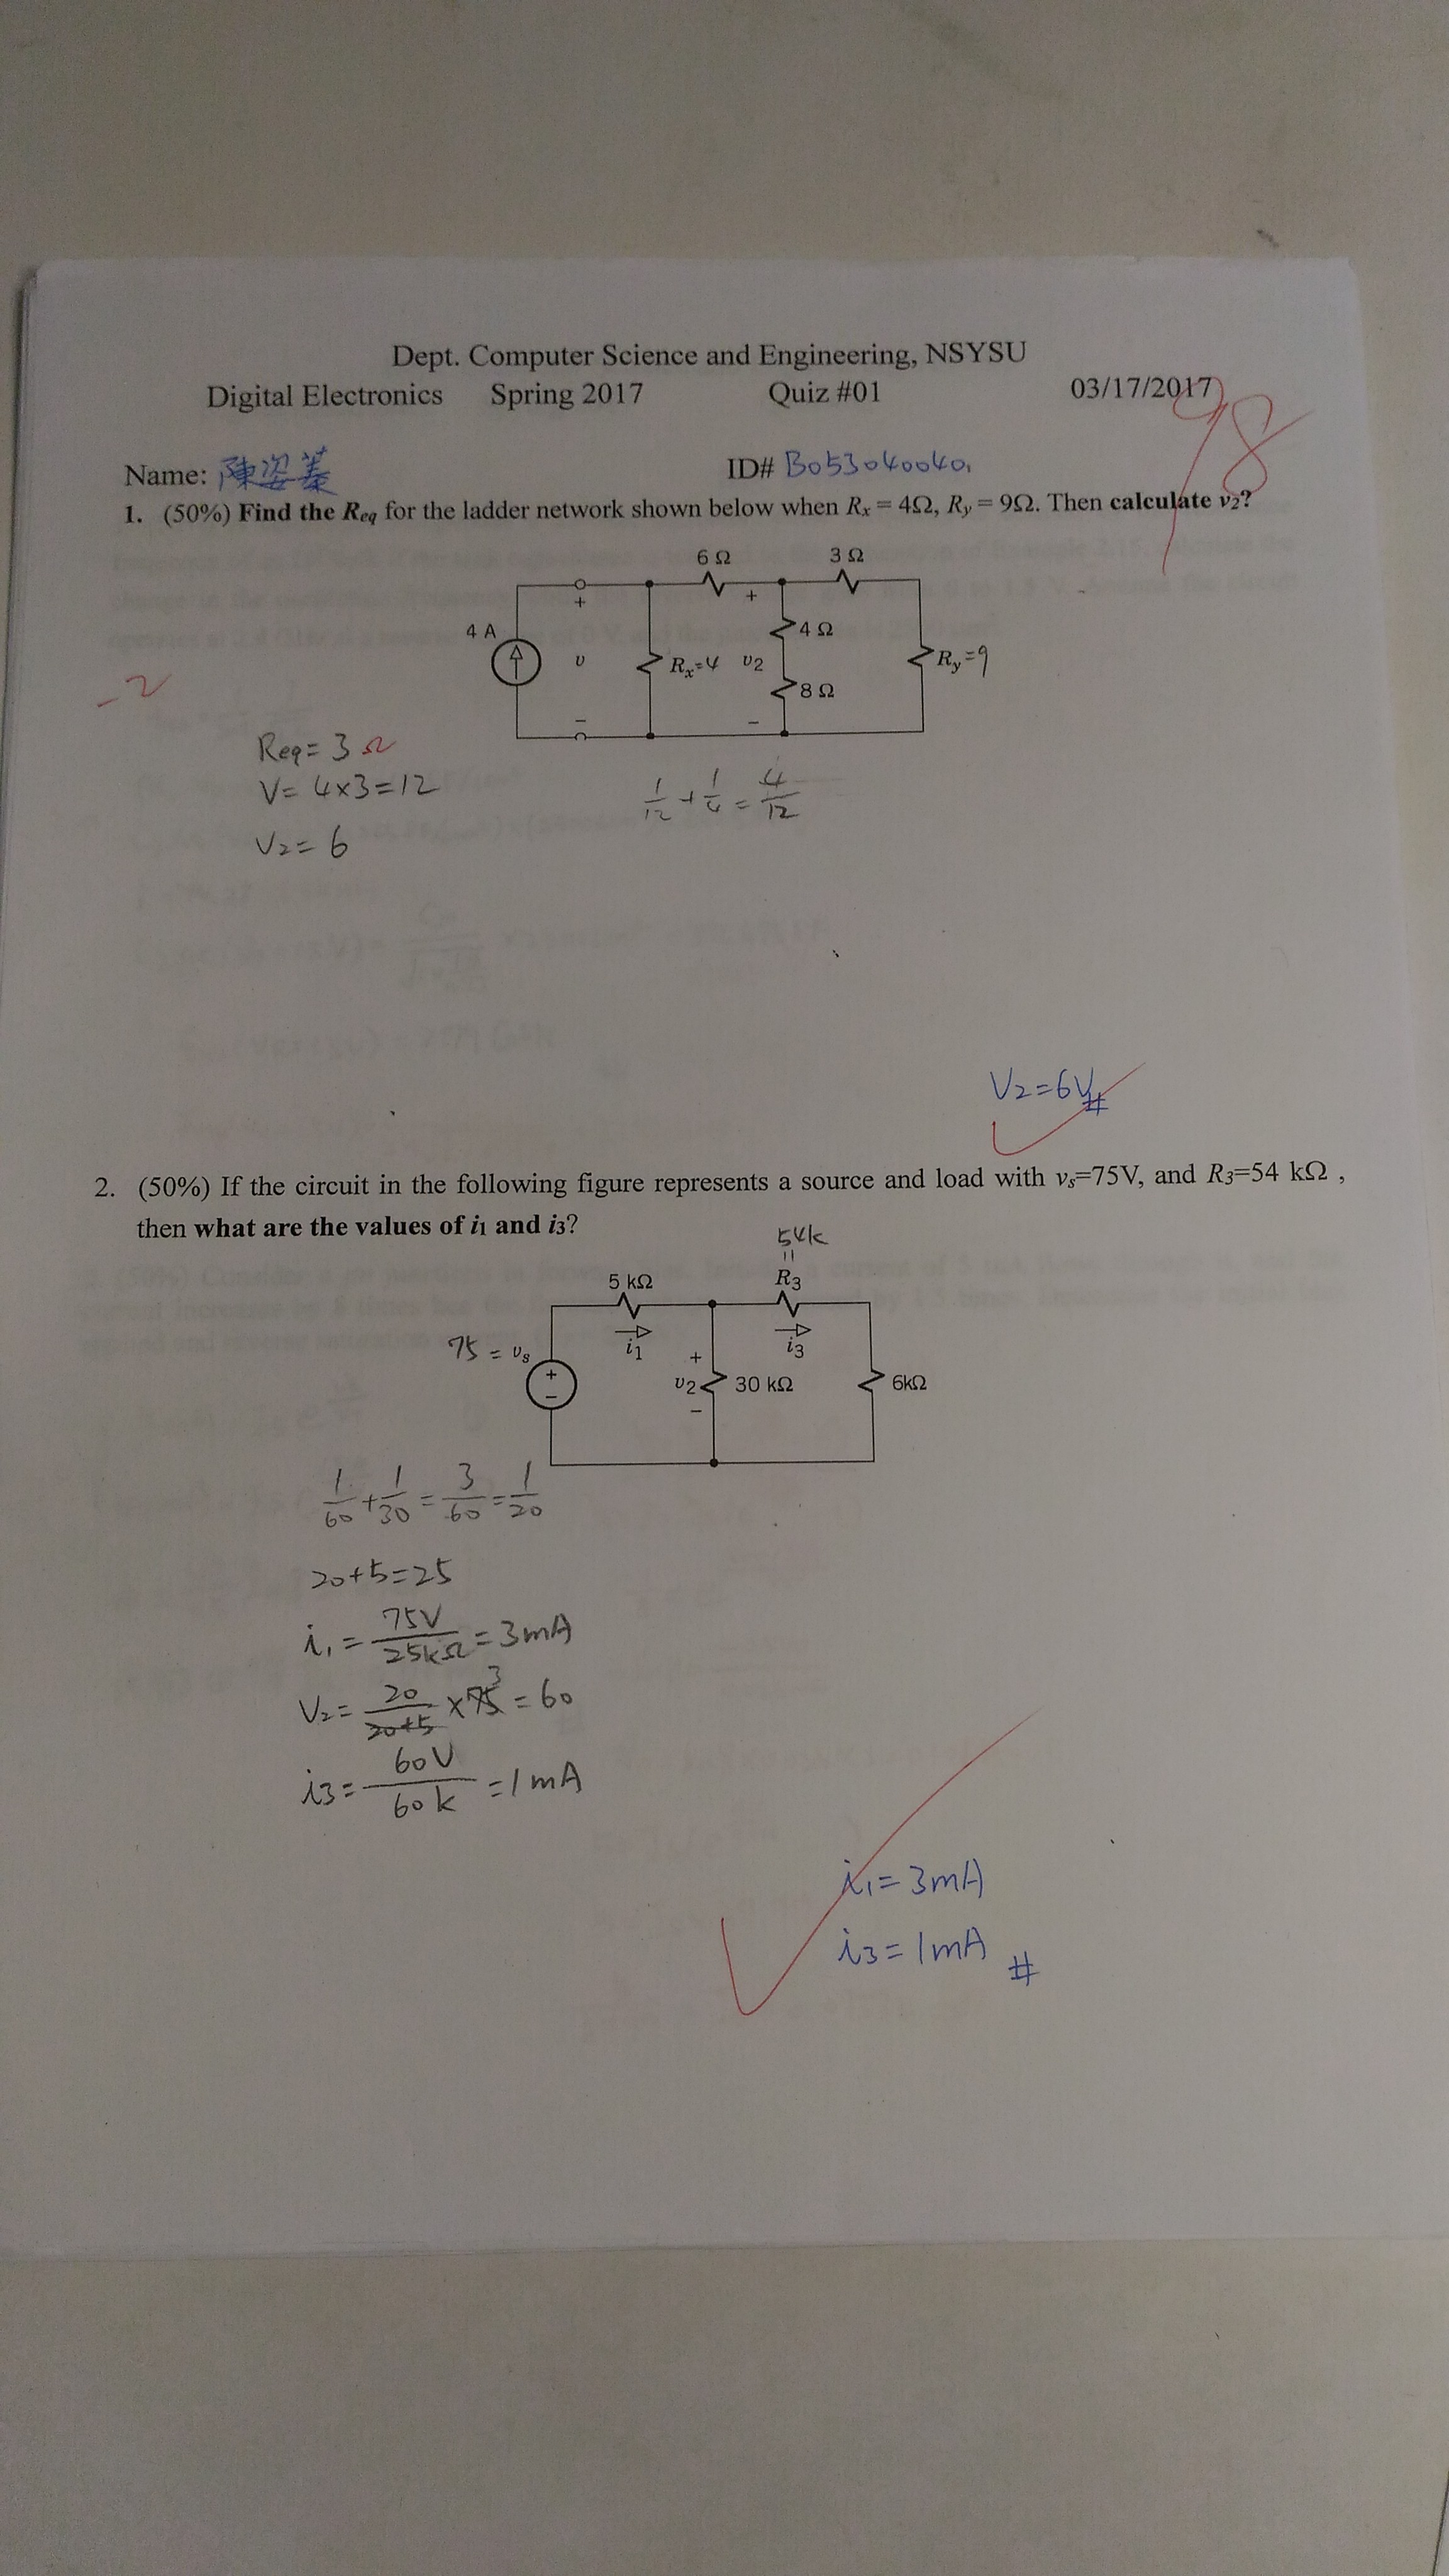 Dept. Computer Science and Engineering, NSYSU
Digital Electronics Spring 2017 Quiz #01 03/17/2017
98
Name: 陳姿蓁 ID# B053040040
1. (50%) Find the Req for the ladder network shown below when Rx = 4Ω, Ry = 9Ω. Then calculate v2?
6 Ω 3 Ω
4 A + v − Rx=4 + v2 − 4 Ω 8 Ω Ry=9
-2
Req = 3 Ω
V = 4×3=12
1/12 + 1/4 = 4/12
V2 = 6
V2=6V#
2. (50%) If the circuit in the following figure represents a source and load with vs=75V, and R3=54 kΩ ,
then what are the values of i1 and i3?
54k
=
5 kΩ R3
i1 i3
75 = vs + − + v2 − 30 kΩ 6kΩ
1/60 + 1/30 = 3/60 = 1/20
20+5=25
i1 = 75V/25kΩ = 3mA
V2 = 20/20+5 × 75 3 = 60
i3 = 60V/60k = 1mA
i1 = 3mA
i3 = 1mA #